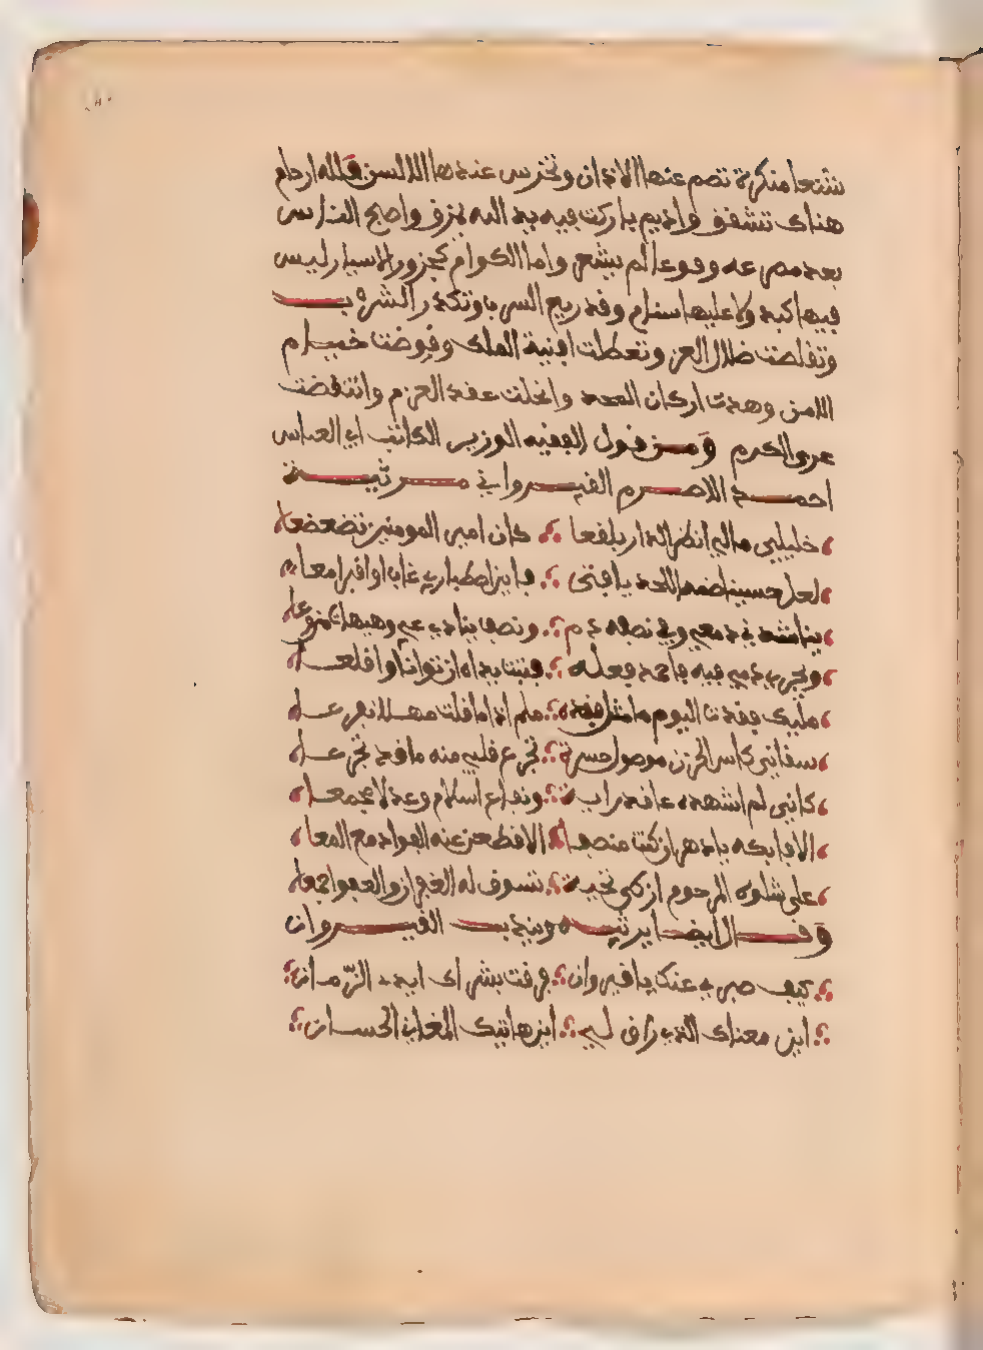 شنعا منكرة تصم عنها الاذان وتخرس عندها الالسن فلله ارحام
هناك تشقق واديم باركت فيه يد الله يمزق واصبح الناس
بعد مصرعه وقوعا لم يشعر واما الكوام كجزور الايسار ليس
فيها كبد ولا عليها سنام وقد ريع السرب وتكدر الشرب
وتقلصت ظلال العز وتعطلت افنية الملك وقوضت خيام
الامن وهدت اركان المجد وانحلت عقد العزم وانتقضت
عرى الكرم ومن قول الفقيه الوزير الكاتب ابي العباس
احمد الاصرم القيرواني مرثية
خليلي مالي انظر الدار بلقعا كان امير المومنين تضعضعا
لعل حسينا ضمه اللحد يا فتى فاين اصطباري غاب او اقبرا معا
يناشدني دمعي وفي نصله دم ونصفا ينادي عم وهيهات منزعا
ويجري دمي فيه فاحمد فعله فتبت يداه ان توانا او اقلعا
مليك فقدنا اليوم ما مثل فقده ملم اذا ما قلت مهلا تفرعا
سقاني كاس الحزن موصول حسرة تجرع قلبي منه ما قد تجرعا
كاني لم اشهده عاقد راية ودفاع اسلام وعدلا مجمعا
الا فابكه يا دهر ان كنت منصفا الا فظعن عنه الفواد مع المعا
على شلوه المرحوم ازكى تحية تسوق له الغفران والعفو اجمعا
وقال ايضا يرثيه ويندب القيروان
كيف صبري عنك يا قيروان فرقت بشراك ايدي الزمان
اين معناك الذي راق لي اين هاتيك المغاني الحسان